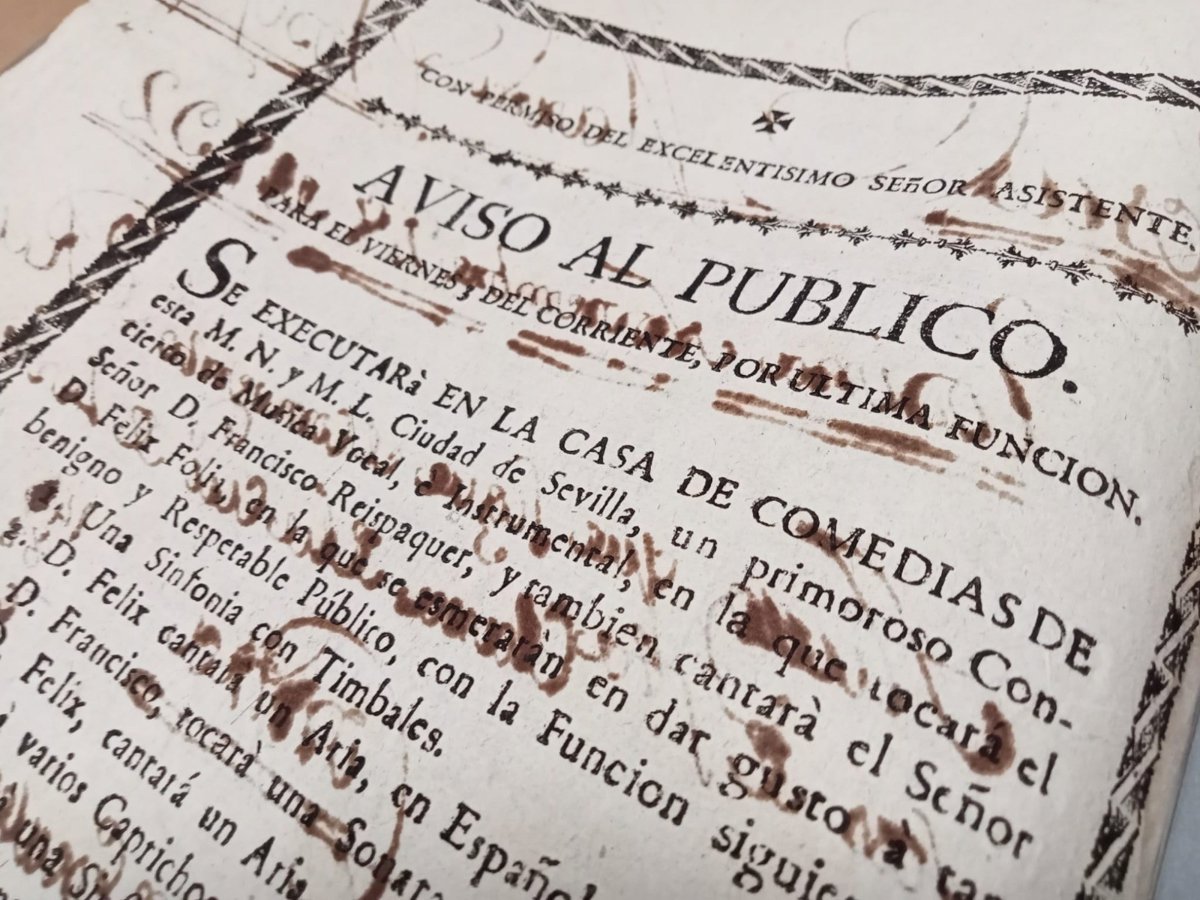 CON PERMISO DEL EXCELENTISIMO SEñOR ASISTENTE.
AVISO AL PUBLICO.
PARA EL VIERNES 3 DEL CORRIENTE, POR ULTIMA FUNCION.
SE EXECUTARà EN LA CASA DE COMEDIAS DE
esta M. N. y M. L. Ciudad de Sevilla, un primoroso Con-
cierto de Musica Vocal, è Instrumental, en la que tocará el
Señor D. Francisco Reispaquer, y tambien cantarà el Señor
D. Felix Foli, en la que se esmeraràn en dar gusto à
benigno y Respetable Público, con la Funcion
1. Una Sinfonia con Timbales.
2. D. Felix cantará un Aria, en Español
D. Francisco, tocarà una Sonata
Felix, cantará un Aria
varios Caprichos
una